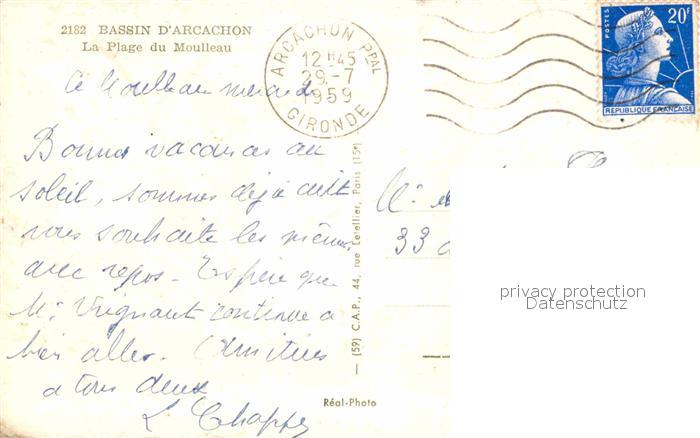 2182 BASSIN D'ARCACHON
La Plage du Moulleau
ARCACHON PPAL
12 H45
29-7
1959
GIRONDE
POSTES
20F
REPUBLIQUE FRANÇAISE
Ce Moulleau mercredi
Bonnes vacances au
soleil, sommes déjà cuits
vous souhaite les mêmes
avec repos - Espère que
Mr Vrignant continue à
bien aller. Amitiés
à tous deux
L
Mr
33
(59) C.A.P., 44, rue Letellier, Paris (15e)
Réal-Photo
privacy protection
Datenschutz